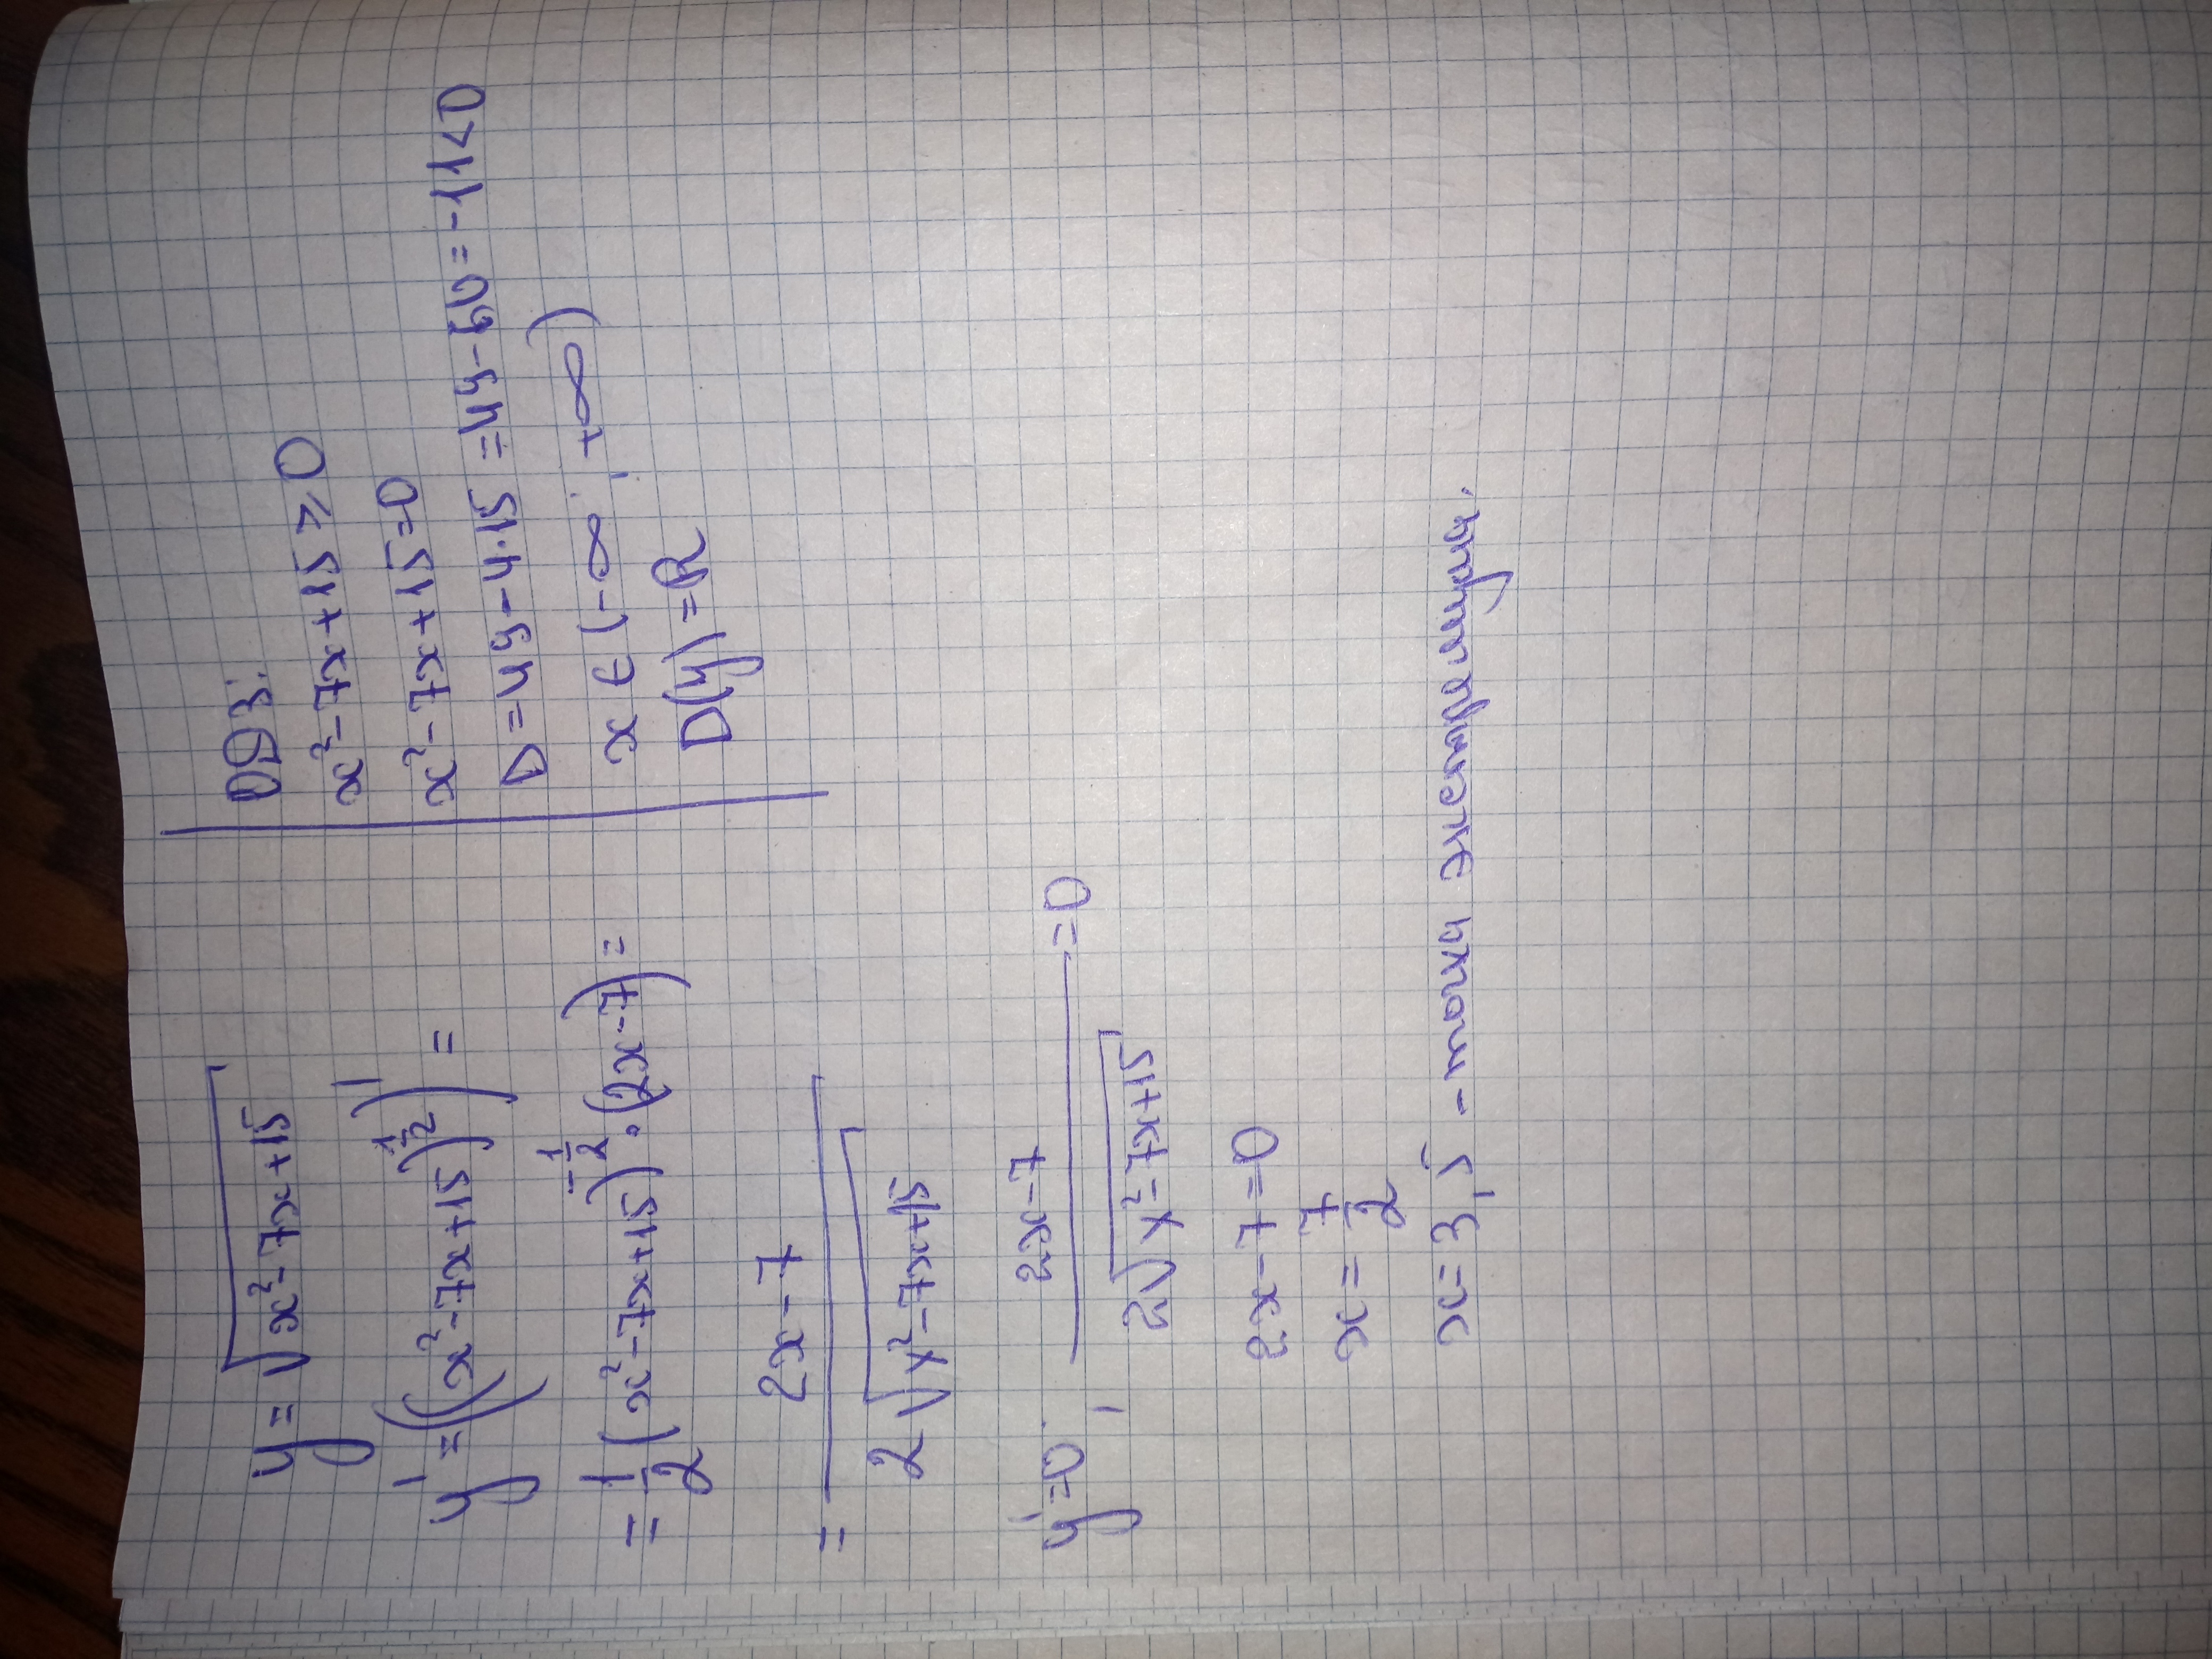 y = √(x² - 7x + 15)
y' = ((x² - 7x + 15)^(1/2))' =
= 1/2 (x² - 7x + 15)^(-1/2) · (2x - 7) =
= (2x - 7) / (2√(x² - 7x + 15))
y' = 0; (2x - 7) / (2√(x² - 7x + 15)) = 0
2x - 7 = 0
x = 7/2
x = 3,5 - точка экстремума.
ОДЗ:
x² - 7x + 15 ≥ 0
x² - 7x + 15 = 0
D = 49 - 4·15 = 49 - 60 = -11 < 0
x ∈ (-∞; +∞)
D(y) = R